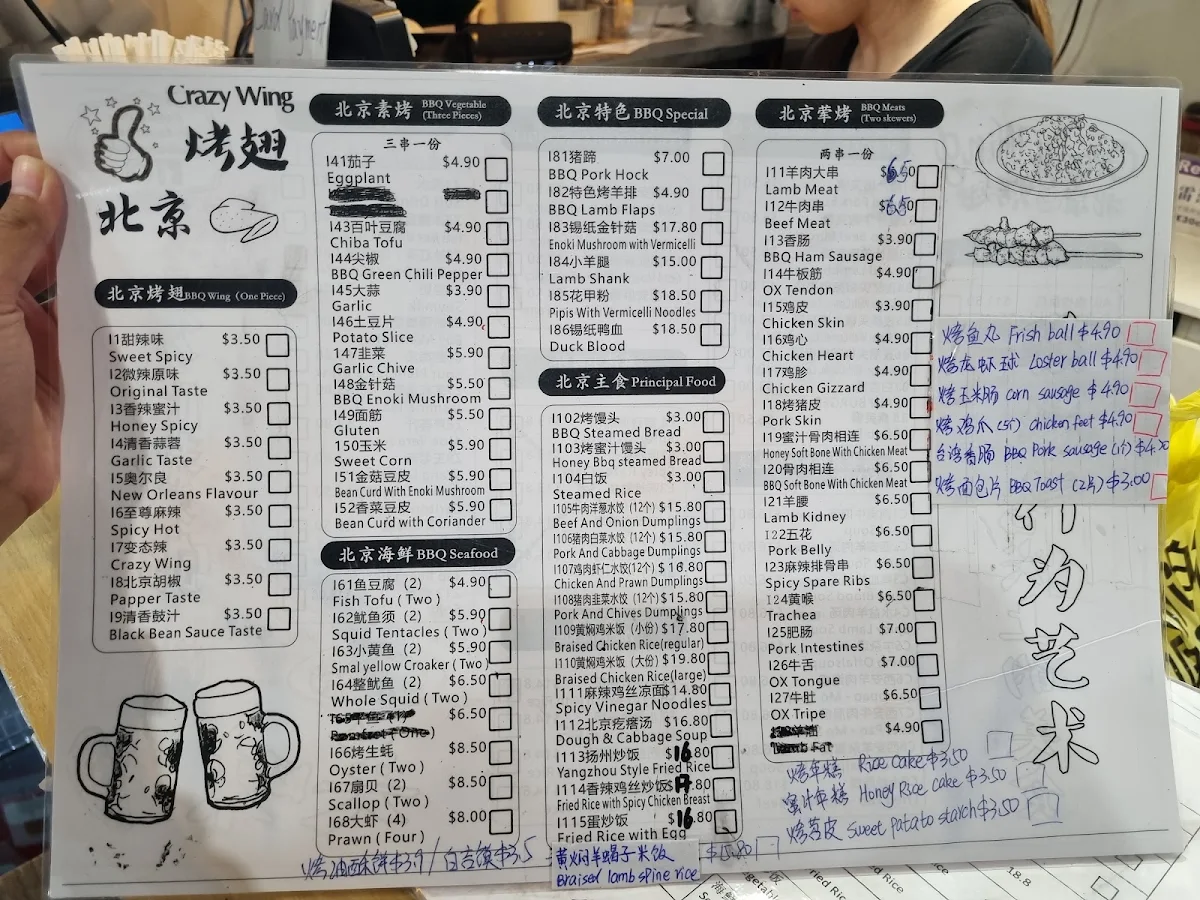 Crazy Wing
烤翅
北京
北京烤翅BBQ Wing (One Piece)
I1甜辣味 $3.50
Sweet Spicy
I2微辣原味 $3.50
Original Taste
I3香辣蜜汁 $3.50
Honey Spicy
I4清香蒜蓉 $3.50
Garlic Taste
I5奥尔良 $3.50
New Orleans Flavour
I6至尊麻辣 $3.50
Spicy Hot
I7变态辣 $3.50
Crazy Wing
I8北京胡椒 $3.50
Papper Taste
I9清香豉汁 $3.50
Black Bean Sauce Taste
北京素烤 BBQ Vegetable (Three Pieces)
三串一份
I41茄子 $4.90
Eggplant
I43百叶豆腐 $4.90
Chiba Tofu
I44尖椒 $4.90
BBQ Green Chili Pepper
I45大蒜 $3.90
Garlic
I46土豆片 $4.90
Potato Slice
147韭菜 $5.90
Garlic Chive
I48金针菇 $5.50
BBQ Enoki Mushroom
I49面筋 $5.50
Gluten
150玉米 $5.90
Sweet Corn
I51金菇豆皮 $5.90
Bean Curd With Enoki Mushroom
I52香菜豆皮 $5.90
Bean Curd with Coriander
北京海鲜 BBQ Seafood
I61鱼豆腐 (2) $4.90
Fish Tofu ( Two )
I62鱿鱼须 (2) $5.90
Squid Tentacles ( Two )
I63小黄鱼 (2) $5.90
Smal yellow Croaker ( Two )
I64整鱿鱼 (2) $6.50
Whole Squid ( Two )
$6.50
I66烤生蚝 $8.50
Oyster ( Two )
I67扇贝 (2) $8.50
Scallop ( Two )
I68大虾 (4) $8.00
Prawn ( Four )
烤油酥饼$3.9 / 白吉馍$3.5
北京特色 BBQ Special
I81猪蹄 $7.00
BBQ Pork Hock
I82特色烤羊排 $4.90
BBQ Lamb Flaps
I83锡纸金针菇 $17.80
Enoki Mushroom with Vermicelli
I84小羊腿 $15.00
Lamb Shank
I85花甲粉 $18.50
Pipis With Vermicelli Noodles
I86锡纸鸭血 $18.50
Duck Blood
北京主食 Principal Food
I102烤馒头 $3.00
BBQ Steamed Bread
I103烤蜜汁馒头 $3.00
Honey Bbq steamed Bread
I104白饭 $3.00
Steamed Rice
I105牛肉洋葱水饺 (12个) $15.80
Beef And Onion Dumplings
I106猪肉白菜水饺 (12个) $15.80
Pork And Cabbage Dumplings
I107鸡肉虾仁水饺(12个) $16.80
Chicken And Prawn Dumplings
I108猪肉韭菜水饺 (12个) $15.80
Pork And Chives Dumplings
I109黄焖鸡米饭 (小份) $17.80
Braised Chicken Rice(regular)
I110黄焖鸡米饭 (大份) $19.80
Braised Chicken Rice(large)
I111麻辣鸡丝凉面$14.80
Spicy Vinegar Noodles
I112北京疙瘩汤 $16.80
Dough & Cabbage Soup
I113扬州炒饭 $16.80
Yangzhou Style Fried Rice
I114香辣鸡丝炒饭$17.80
Fried Rice with Spicy Chicken Breast
I115蛋炒饭 $16.80
Fried Rice with Egg
黄焖羊蝎子米饭 $15.80
Braised lamb spine rice
北京荤烤 BBQ Meats (Two skewers)
两串一份
I11羊肉大串
Lamb Meat
I12牛肉串
Beef Meat
I13香肠 $3.90
BBQ Ham Sausage
I14牛板筋 $4.90
OX Tendon
I15鸡皮 $3.90
Chicken Skin
I16鸡心 $4.90
Chicken Heart
I17鸡胗 $4.90
Chicken Gizzard
I18烤猪皮 $4.90
Pork Skin
I19蜜汁骨肉相连 $6.50
Honey Soft Bone With Chicken Meat
I20骨肉相连 $6.50
BBQ Soft Bone With Chicken Meat
I21羊腰 $6.50
Lamb Kidney
I22五花 $6.50
Pork Belly
I23麻辣排骨串 $6.50
Spicy Spare Ribs
I24黄喉 $6.50
Trachea
I25肥肠 $7.00
Pork Intestines
I26牛舌 $7.00
OX Tongue
I27牛肚 $6.50
OX Tripe
$4.90
烤年糕 Rice cake $3.50
蜜汁年糕 Honey Rice cake $3.50
烤苕皮 sweet patato starch $3.50
烤鱼丸 Frish ball $4.90
烤龙虾球 Loster ball $4.90
烤玉米肠 corn sausage $4.90
烤鸡爪 chicken feet $4.90
台湾香肠 BBQ Pork sausage (1个)
烤面包片 BBQ Toast (2片) $3.00
为艺术